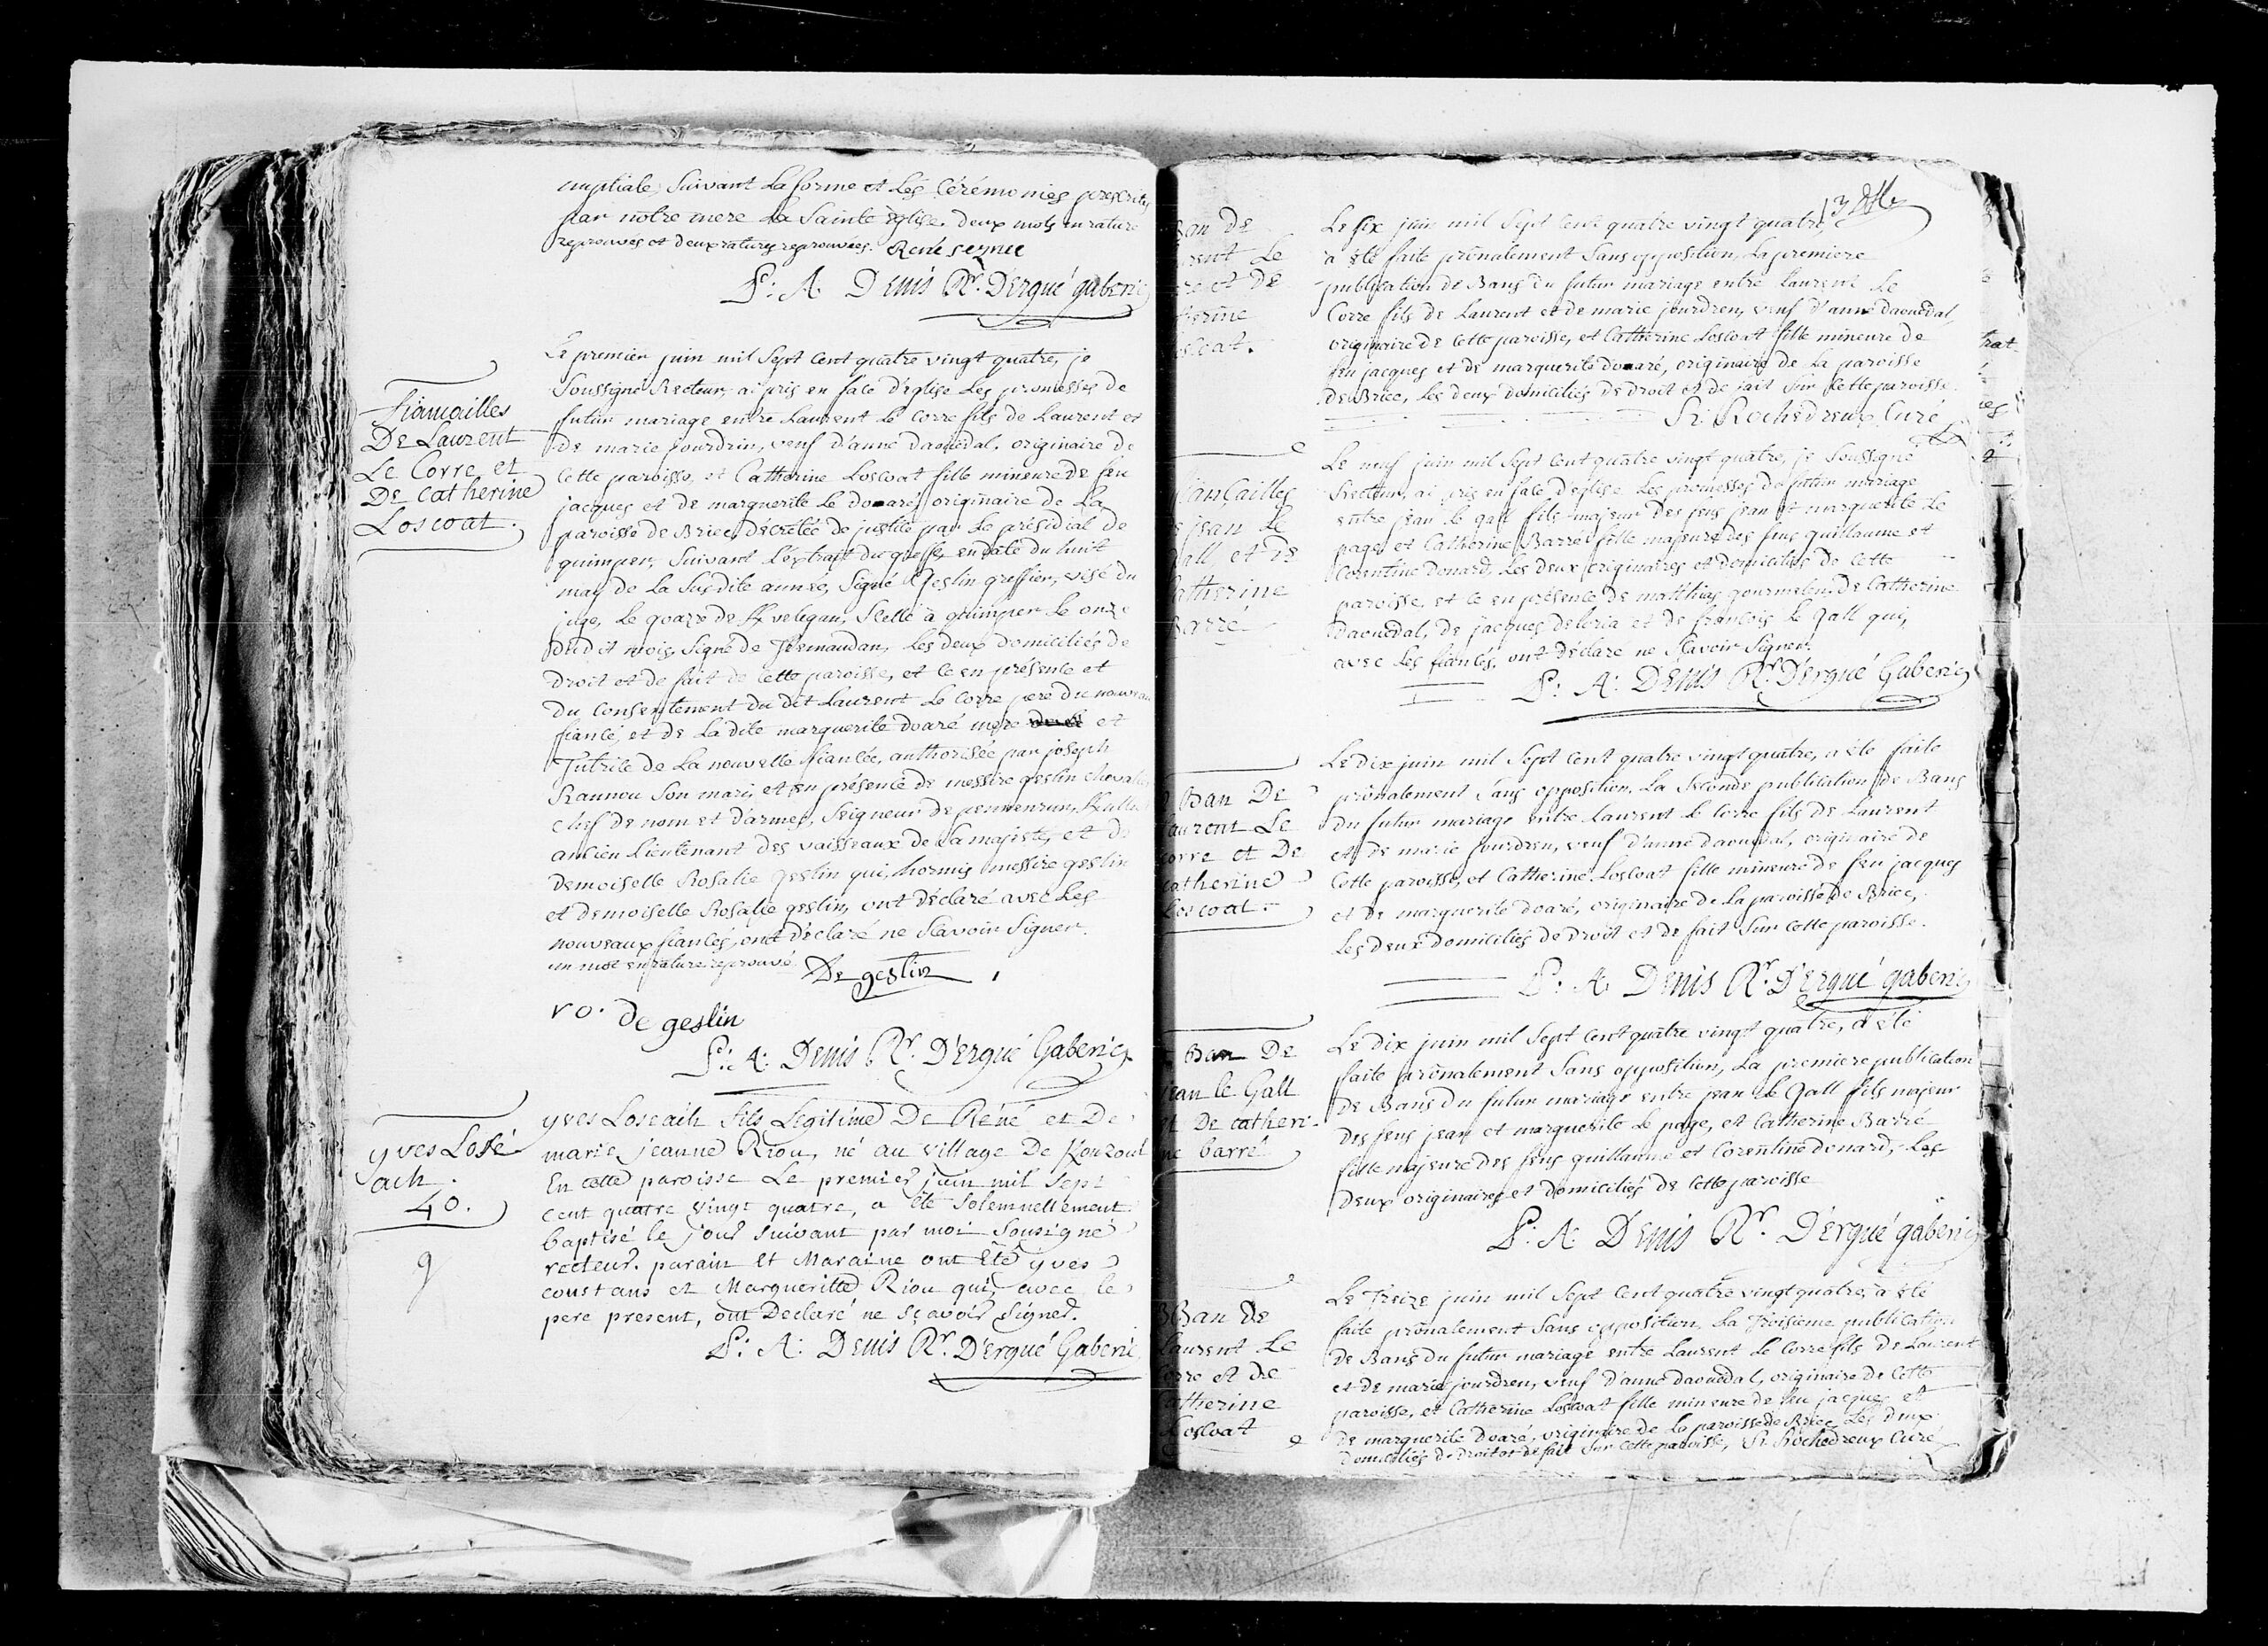 nuptiale, Suivant La forme et Les Cérémonies prescrites
par notre mere La Sainte Eglise. deux mots en rature
reprouvés et deux ratures reprouvées. René seznec
P: A: Denis Rr. D'Ergué gaberic
Fiançailles
De Laurent
Le Corre, et
De catherine
Loscoat.
Le premier juin mil Sept Cent quatre vingt quatre, je
Soussigné Recteur, ai pris en face d'église Les promesses de
futur mariage entre Laurent Le Corre fils de Laurent et
de marie jourdrin, veuf d'anne daouëdal, originaire de
Cette paroisse, et Catherine Loscoat fille mineure de feu
jacques et de marguerite Le doaré, originaire de La
paroisse de Briec, décrétée de justice par Le présidial de
quimper, Suivant L'extrait du greffe, en date du huit
may de La Susdite année, Signé Geslin greffier, visé du
juge, Le goazre de Kvelegan, Scellé à quimper Le onze
dudit mois, Signé de Kernaudan, Les deux domiciliés de
droit et de fait de Cette paroisse, et ce en présence et
du Consentement du dit Laurent Le Corre pere du nouveau
fiancé, et de La dite marguerite doaré mere et
Tutrice de La nouvelle fiancée, authorisée par joseph
Rannou Son mari, et en présence de messire geslin chevalier
Chef de nom et d'armes, Seigneur de pennenrun,
ancien Lieutenant des vaisseaux de Sa majesté, et de
demoiselle Rosalie geslin qui, hormis messire geslin
et demoiselle Rosalie geslin, ont déclaré avec Les
nouveaux fiancés, ont déclaré ne Scavoir Signer.
un mot en rature reprouvé. De geslin
ro. de geslin
P: A: Denis Rr. D'Ergué Gaberic
yves Losé
ach.
40.
yves Loseach fils Legitime De Réné et De
marie jeanne Riou, né au village De Kouzout
En cette paroisse Le premier juin mil Sept
cent quatre vingt quatre, a été Solemnellement
baptisé le jour suivant par moi Sousigné
recteur. parain et Maraine ont Eté yves
coustans et Margueritte Riou qui, avec le
pere present, ont Declaré ne sçavoir signer.
P: A: Denis Rr. D'Ergué Gaberic
Ban de
rent Le
re et de
herine
oscoat.
Le six juin mil Sept Cent quatre vingt quatre,
a été faite prônalement Sans opposition, La premiere
publication de Bans du futur mariage entre Laurent Le
Corre fils de Laurent et de marie jourdren, veuf d'anne daouëdal,
originaire de Cette paroisse, et Catherine Loscoat fille mineure de
feu jacques et de marguerite doaré, originaire de La paroisse
de Briec, Les deux domiciliés de droit et de fait sur Cette paroisse.
Rochedreux Curé
iançailles
e jean Le
Gall et de
Catherine
Barré
Le neuf juin mil Sept Cent quatre vingt quatre, je Soussigné
Recteur, ai pris en face d'église Les promesses de futur mariage
entre jean Le gall fils majeur des feus jean et marguerite Le
page, et Catherine Barré fille majeure des feus guillaume et
Corentine donard, Les deux originaires et domiciliés de Cette
paroisse, et ce en présence de matthias gourmelen, de Catherine
daouëdal, de jacques deloria et de françois Le Gall qui,
avec Les fiancés, ont déclaré ne Scavoir Signer.
P: A: Denis Rr. D'Ergué Gaberic
Ban De
aurent Le
orre et De
catherine
Loscoat.
Le dix juin mil Sept Cent quatre vingt quatre, a été faite
prônalement Sans opposition, La Seconde publication de Bans
du futur mariage entre Laurent Le Corre fils de Laurent
et de marie jourdren, veuf d'anne daouedal, originaire de
Cette paroisse, et Catherine Loscoat fille mineure de feu jacques
et de marguerite doaré, originaire de La paroisse de Briec,
Les deux domiciliés de droit et de fait Sur Cette paroisse.
P. A. Denis Rr. D'Ergué gaberic
Ban De
jean le Gall
et De catheri-
ne barré
Le dix juin mil Sept Cent quatre vingt quatre, a été
faite prônalement Sans opposition, La premiere publication
de Bans du futur mariage entre jean Le Gall fils majeur
des feus jean et marguerite Le page, et Catherine Barré
fille majeure des feus guillaume et Corentine donard, Les
deux originaires et domiciliés de Cette paroisse
P: A: Denis Rr. D'Ergué gaberic
3 Ban de
Laurent Le
orre et de
atherine
Loscoat
Le Treize juin mil Sept Cent quatre vingt quatre, a été
faite prônalement Sans opposition La Troisieme publication
de Bans du futur mariage entre Laurent Le Corre fils de Laurent
et de marie jourdren, veuf d'anne daouëdal, originaire de Cette
paroisse, et Catherine Loscoat fille mineure de feu jacques et
de marguerite doaré, originaire de La paroisse de Briec, Les deux
domiciliés de droit et de fait Sur Cette paroisse, Rochedreux Curé